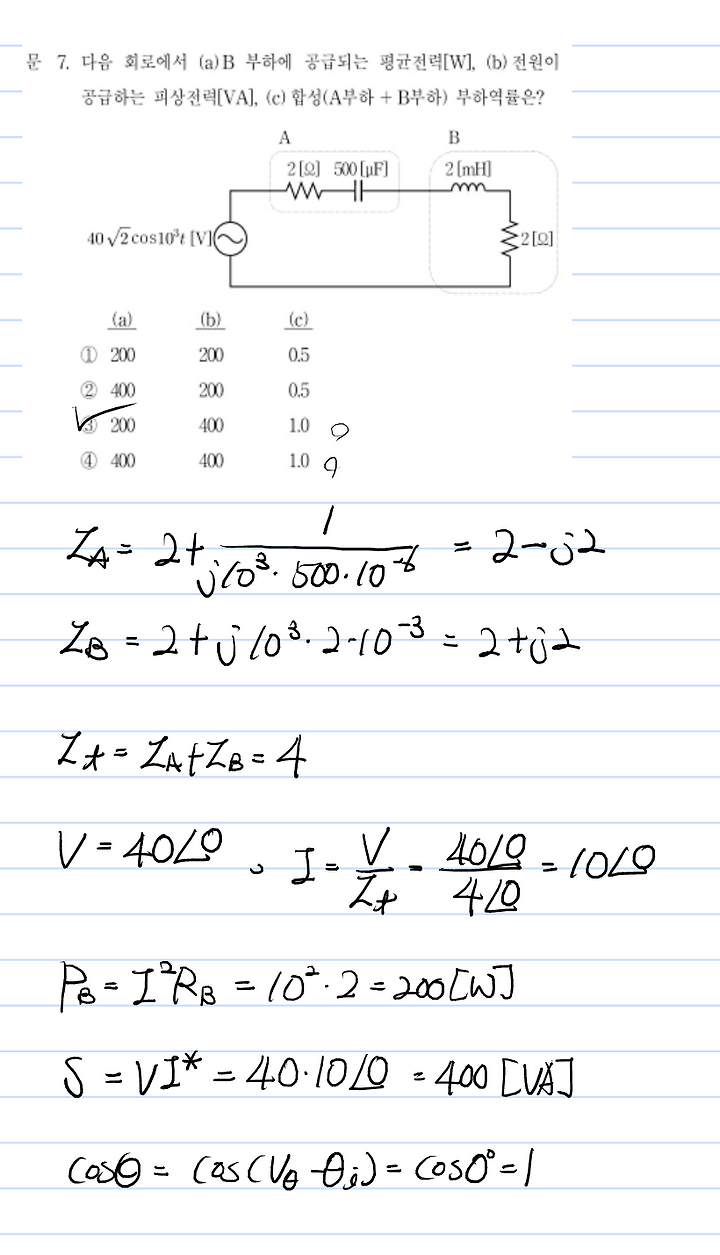 문 7. 다음 회로에서 (a)B 부하에 공급되는 평균전력[W], (b) 전원이
공급하는 피상전력[VA], (c) 합성(A부하 + B부하) 부하역률은?
A B
2[Ω] 500[μF] 2[mH]
40√2cos10³t [V] 2[Ω]
(a) (b) (c)
① 200 200 0.5
② 400 200 0.5
③ 200 400 1.0
④ 400 400 1.0
Z_A = 2 + 1/(j10³·500·10⁻⁶) = 2-j2
Z_B = 2+j10³·2·10⁻³ = 2+j2
Z_t = Z_A+Z_B = 4
V = 40∠0, I = V/Z_t = 40∠0/4∠0 = 10∠0
P_B = I²R_B = 10²·2 = 200[W]
S = VI* = 40·10∠0 = 400 [VA]
cosθ = cos(V_θ-θ_i) = cos0° = 1